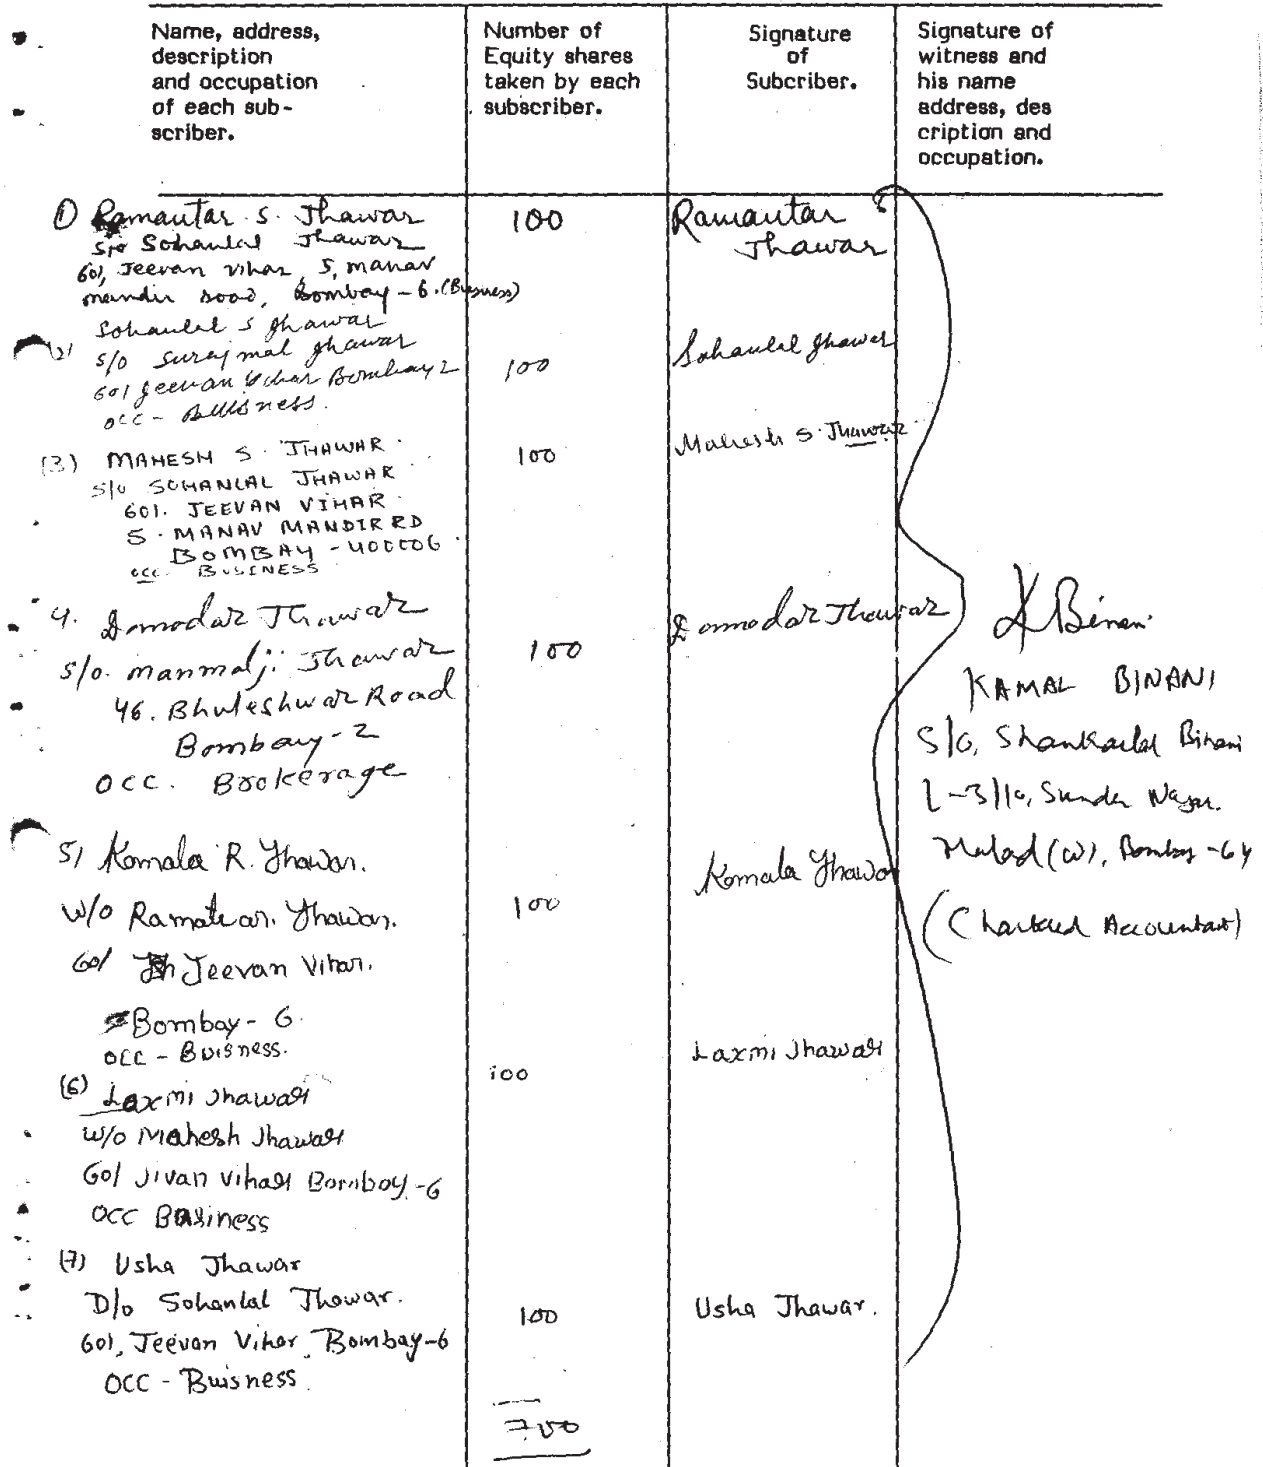 Name, address,
description
and occupation
of each sub-
scriber.
Number of
Equity shares
taken by each
subscriber.
Signature
of
Subcriber.
Signature of
witness and
his name
address, des
cription and
occupation.
① Ramautar S. Jhawar
S/o Sohanlal Jhawar
601, Jeevan vihar, S, manav
mandir road, Bombay-6. (Business)
100
Ramautar S
Jhawar
2) Sohanlal S Jhawar
S/o Surajmal Jhawar
601 Jeevan Vihar Bombay 2
occ - Buisness.
100
Sohanlal Jhawar
(3) MAHESH S. JHAWAR.
S/o SOHANLAL JHAWAR
601. JEEVAN VIHAR
S. MANAV MANDIR RD
BOMBAY - 400006.
occ. BUSINESS
100
Mahesh S. Jhawar
4. Damodar Jhawar
S/o. manmalji Jhawar
46. Bhuleshwar Road
Bombay-2
OCC. Brokerage
100
Damodar Jhawar
K Binani
KAMAL BINANI
S/o, Shankarlal Binani
L-3/10, Sunder Nagar.
Malad (W), Bombay-64
(Chartered Accountant)
5) Komala R. Jhawar.
W/o Ramautar. Jhawar.
601 Jeevan Vihar.
Bombay - 6.
OCC - Buisness.
100
Komala Jhawar
(6) Laxmi Jhawar
W/o Mahesh Jhawar
601 Jivan vihar Bombay-6
OCC Business
100
Laxmi Jhawar
(7) Usha Jhawar
D/o Sohanlal Jhawar.
601, Jeevan Vihar, Bombay-6
OCC - Buisness.
100
Usha Jhawar.
700